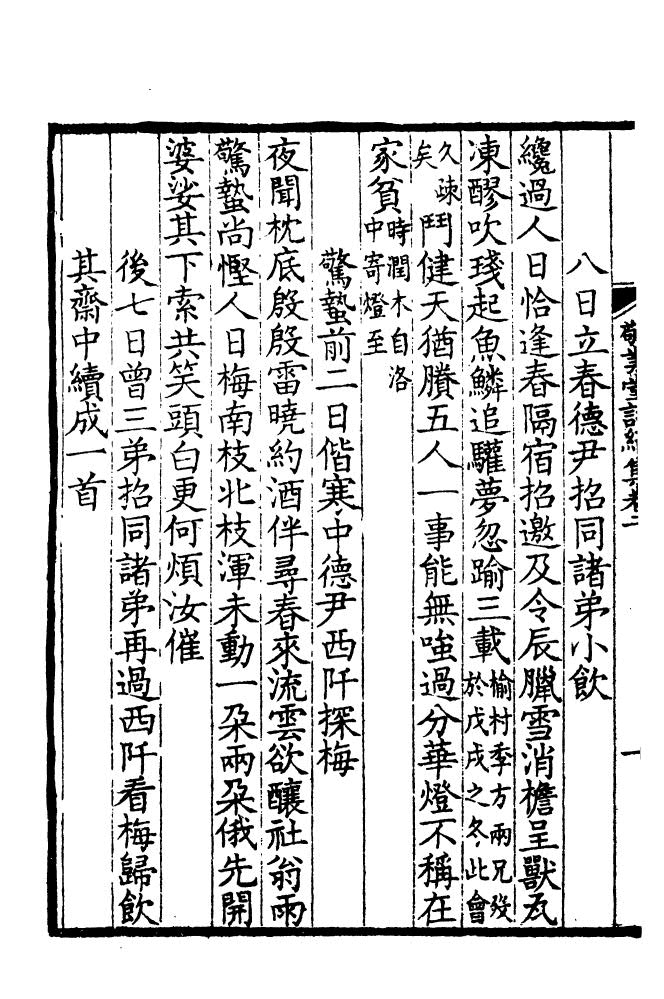 敬業堂詩續集卷二
一
八日立春德尹招同諸弟小飲
纔過人日恰逢春隔宿招邀及令辰臘雪消檐呈獸瓦
凍醪吹琖起魚鱗追驩夢忽踰三載榆村季方兩兄歿於戊戌之冬此會
久疎矣鬥健天猶賸五人一事能無嗤過分華燈不稱在
家貧時潤木自洛中寄燈至
驚蟄前二日偕寒中德尹西阡探梅
夜聞枕底殷殷雷曉約酒伴尋春來流雲欲釀社翁雨
驚蟄尚慳人日梅南枝北枝渾未動一朶兩朶俄先開
婆娑其下索共笑頭白更何煩汝催
後七日曾三弟招同諸弟再過西阡看梅歸飲
其齋中續成一首